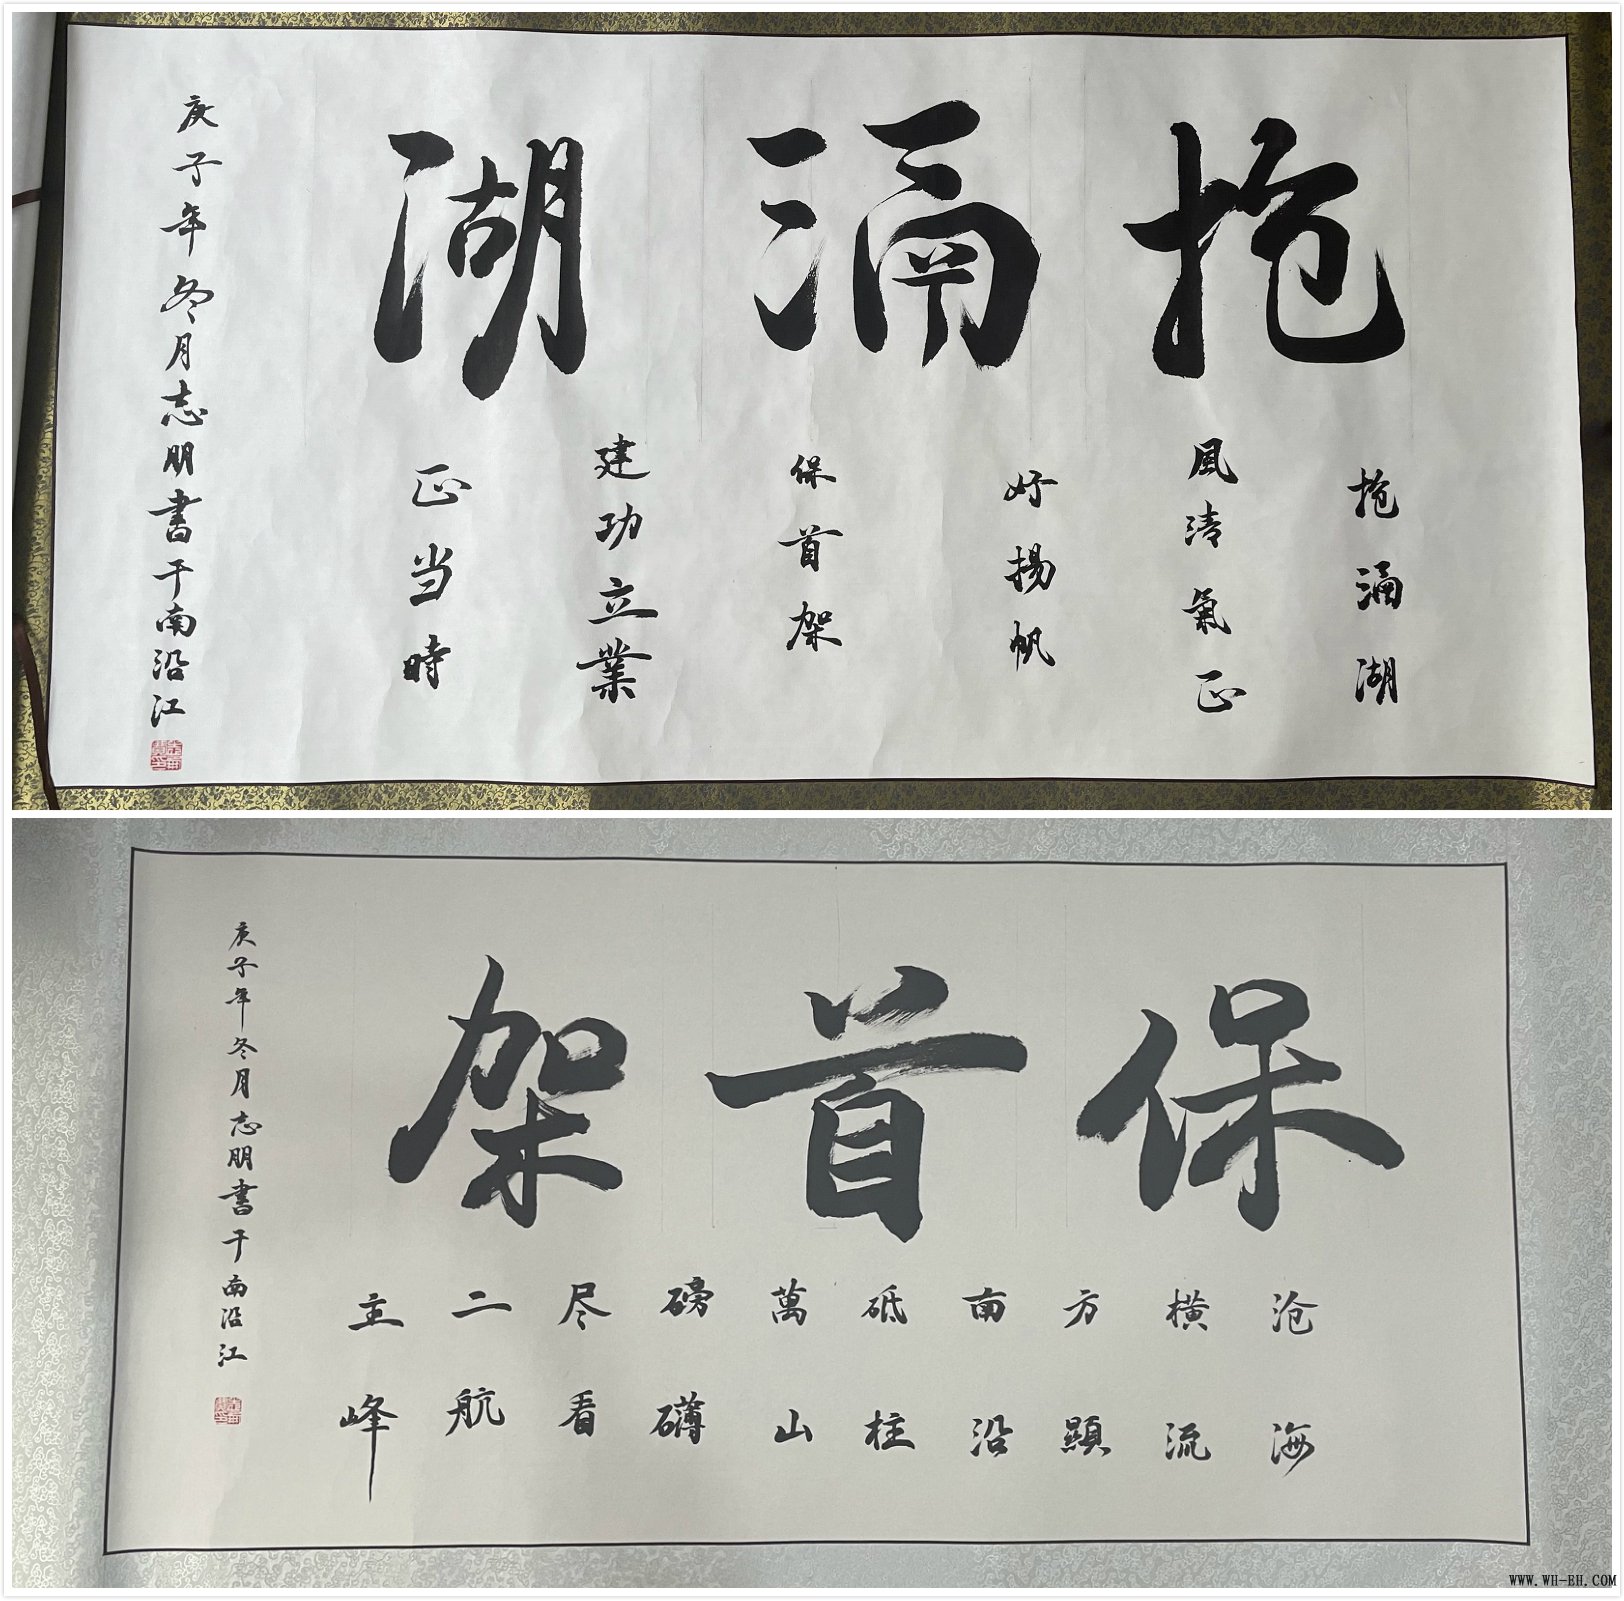 抢滆湖
抢滆湖
風清氣正
好揚帆
保首架
建功立業
正当時
庚子年冬月志朋書于南沿江
保首架
沧海
横流
方顯
南沿
砥柱
萬山
磅礴
尽看
二航
主峰
庚子年冬月志朋書于南沿江
WWW.WH-EH.COM